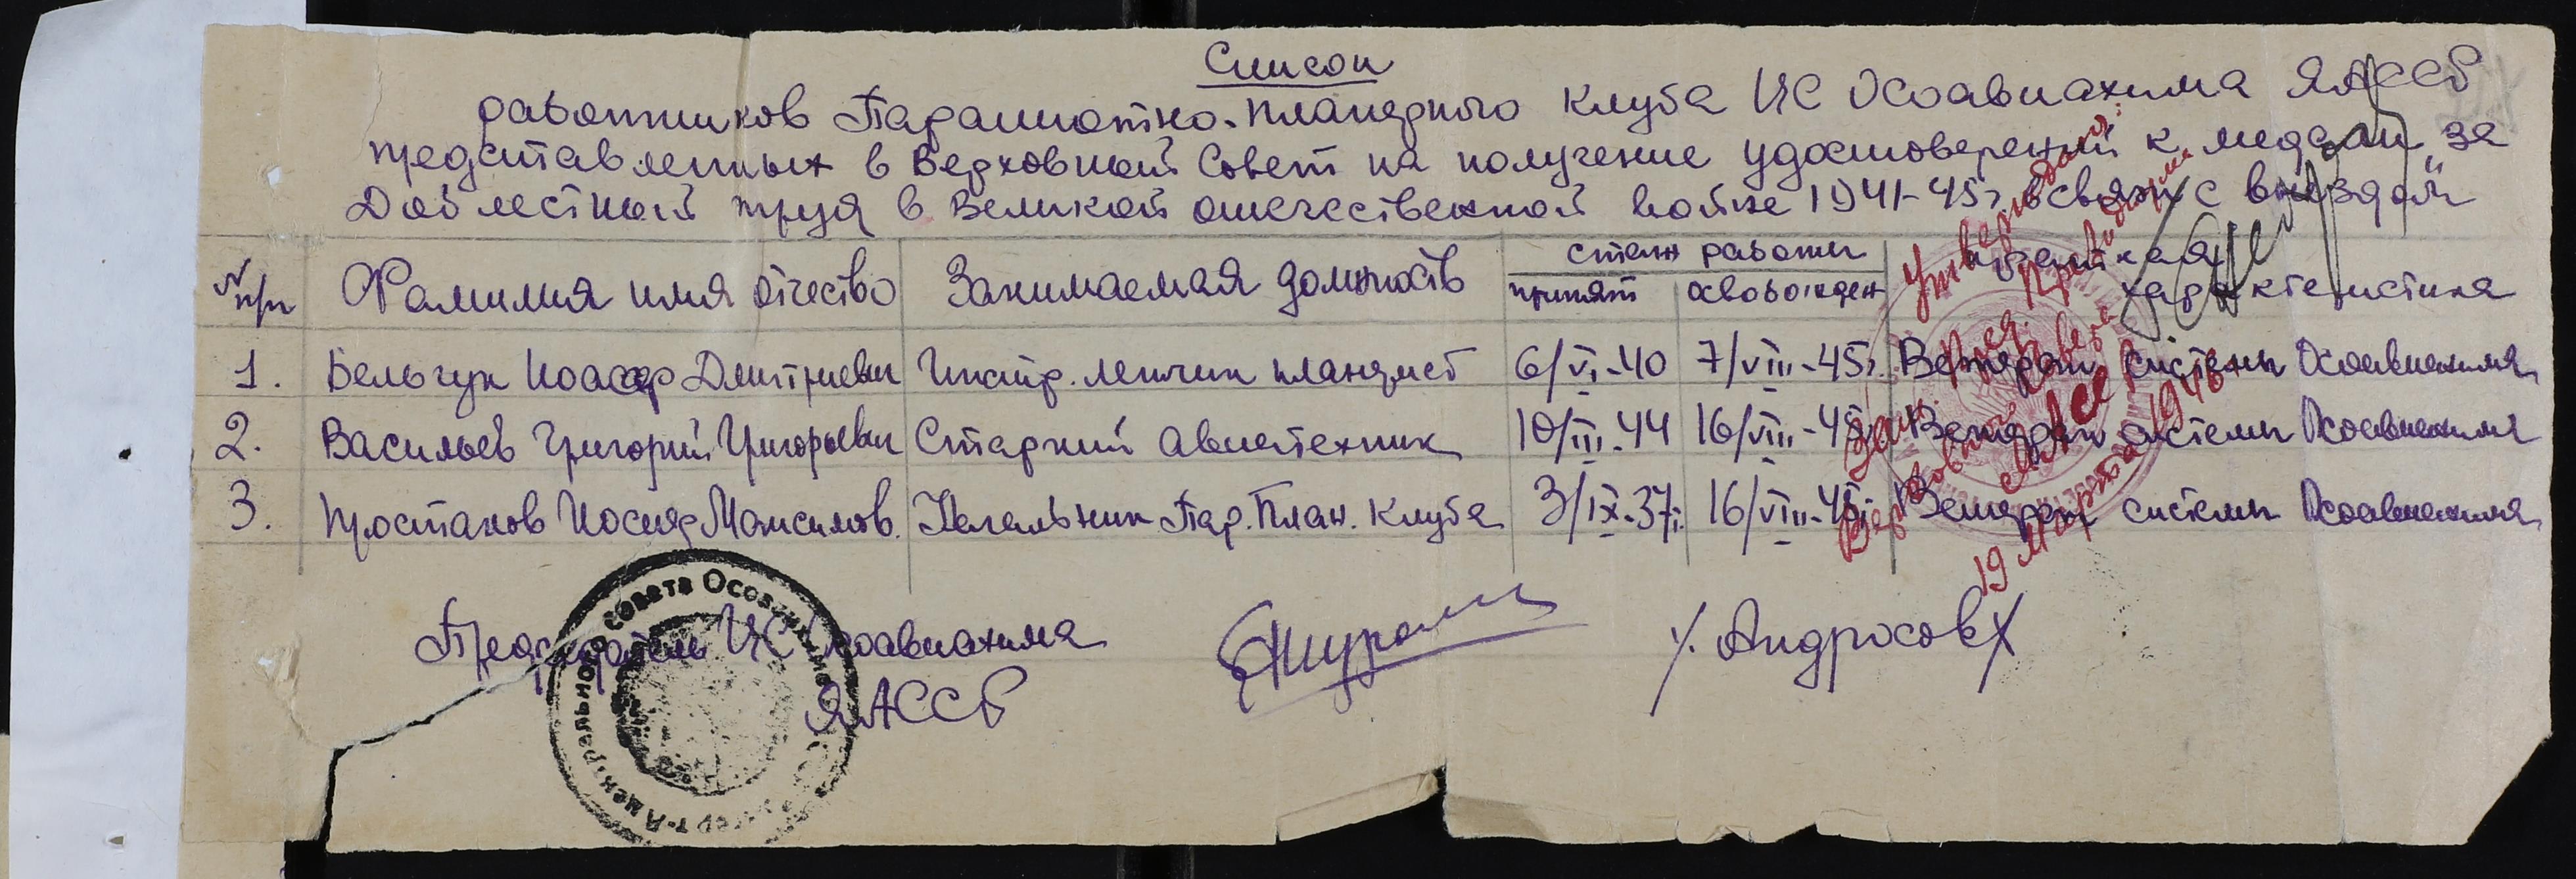 Список
работников Парашютно-планерного клуба ЦС Осоавиахима ЯАССР
представленных в Верховный Совет на получение удостоверений к медали „за
Доблестный труд в Великой отечественной войне 1941-45г. в связи с выездом"
№ п/п Фамилия имя отчество Занимаемая должность стаж работы краткая характеристика
принят освобожден
1. Бельчук Иоасаф Дмитриевич Инстр. летчик планерист 6/VI-40 7/VIII-45г. Ветеран системы Осоавиахима
2. Васильев Григорий Григорьевич Старший Авиатехник 10/III-44 16/VIII-45г. Ветеран системы Осоавиахима
3. Простаков Иосиф Максимов. Начальник Пар. План. Клуба 3/IX-37г. 16/VIII-45г. Ветеран системы Осоавиахима
Утверждаю:
Зам. Пред. Президиума
Верховного Совета
ЯАССР
19 марта 1946
Председатель ЦС Осоавиахима
ЯАССР
/. Андросов /
Центрального совета Осоавиахима